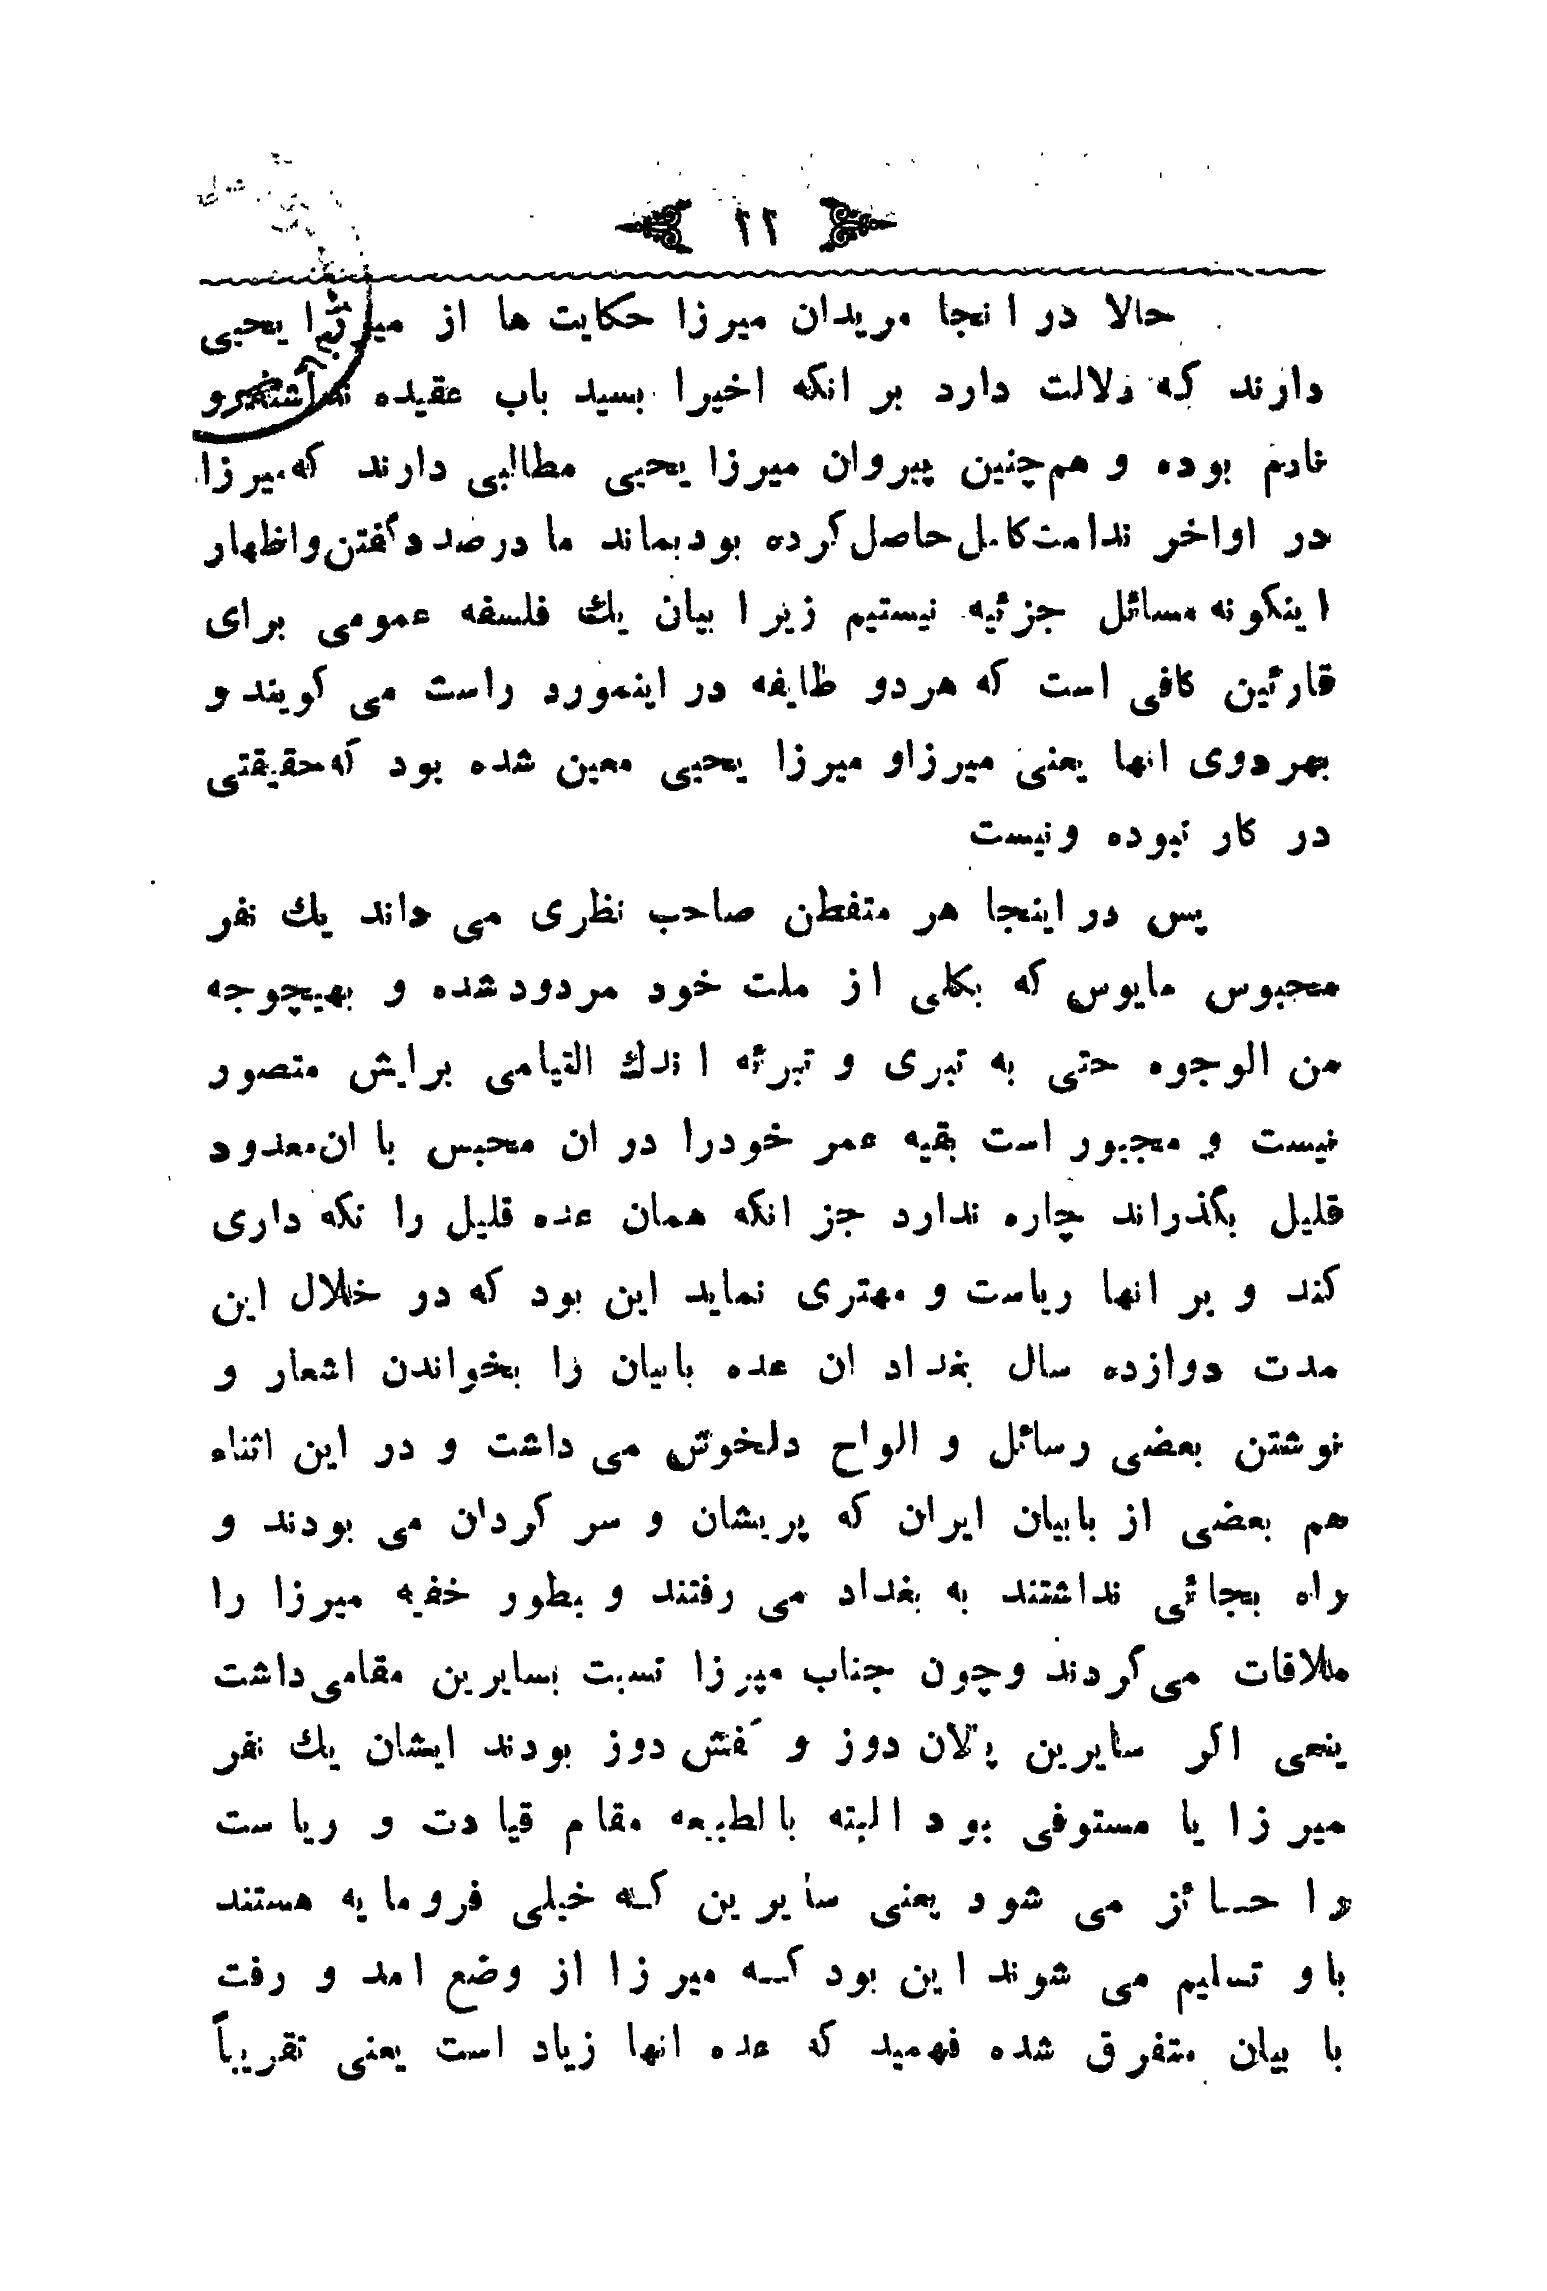 ۲۲
حالا در انجا مریدان میرزا حکایت ها از میرزا یحیی
دارند که دلالت دارد بر انکه اخیرا بسید باب عقیده نداشته و
نادم بوده و هم‌چنین پیروان میرزا یحیی مطالبی دارند که میرزا
در اواخر ندامت کامل حاصل کرده بود بماند ما درصدد گفتن و اظهار
اینکونه مسائل جزئیه نیستیم زیرا بیان یك فلسفه عمومی برای
قارئین کافی است که هر دو طایفه در اینمورد راست می کویند و
بهر دوی انها یعنی میرزا و میرزا یحیی معین شده بود که حقیقتی
در کار نبوده و نیست
پس در اینجا هر متفطن صاحب نظری می داند یك نفر
محبوس مایوس که بکلی از ملت خود مردود شده و بهیچوجه
من الوجوه حتی به تبری و تبرئه اندك التیامی برایش متصور
نیست و مجبور است بقیه عمر خودرا در ان محبس با ان معدود
قلیل بگذراند چاره ندارد جز انکه همان عده قلیل را نکه داری
کند و بر انها ریاست و مهتری نماید این بود که در خلال این
مدت دوازده سال بغداد ان عده بابیان را بخواندن اشعار و
نوشتن بعضی رسائل و الواح دلخوش می داشت و در این اثناء
هم بعضی از بابیان ایران که پریشان و سر کردان می بودند و
راه بجائی نداشتند به بغداد می رفتند و بطور خفیه میرزا را
ملاقات می کردند و چون جناب میرزا نسبت بسایرین مقامی داشت
ینعی اکر سایرین پالان دوز و کفش دوز بودند ایشان یك نفر
میرزا یا مستوفی بود البته بالطبیعه مقام قیادت و ریاست
را حائز می شود یعنی سایرین که خیلی فرومایه هستند
باو تسلیم می شوند این بود که میرزا از وضع امد و رفت
با بیان متفرق شده فهمید که عده انها زیاد است یعنی تقریباً